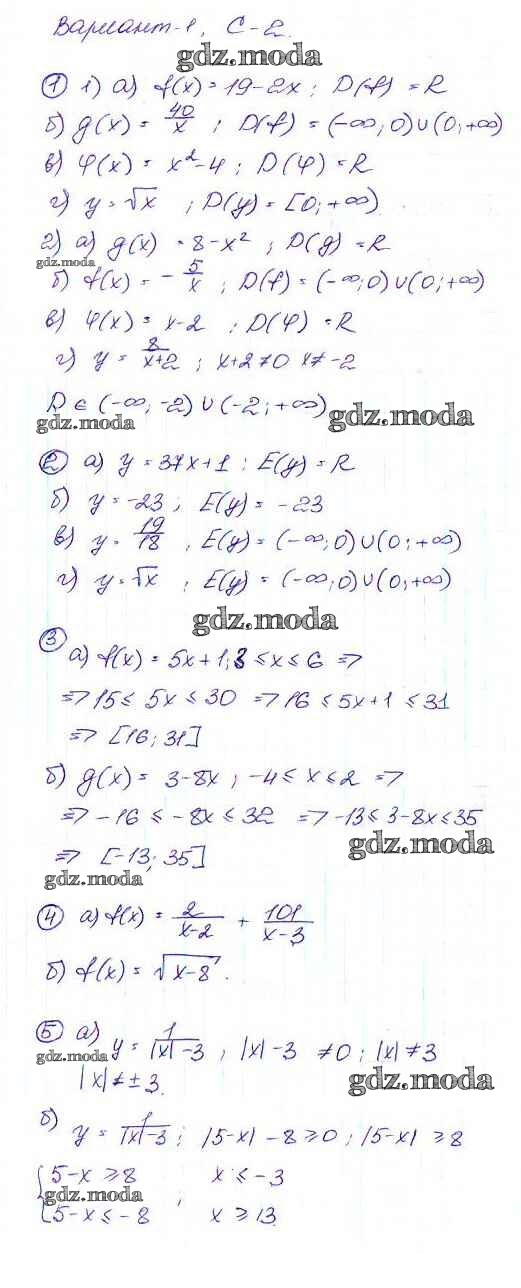 Вариант-1, С-2.
gdz.moda
① 1) а) f(x) = 19-2x ; D(f) = R
б) g(x) = 40/x ; D(f) = (-∞; 0) ∪ (0; +∞)
в) φ(x) = x²-4 ; D(φ) = R
г) y = √x ; D(y) = [0; +∞)
2) а) g(x) = 8-x² ; D(g) = R
gdz.moda
б) f(x) = - 5/x ; D(f) = (-∞; 0) ∪ (0; +∞)
в) φ(x) = x-2 ; D(φ) = R
г) y = 8/(x+2) ; x+2≠0 x≠-2
D ∈ (-∞; -2) ∪ (-2; +∞)
gdz.moda gdz.moda
② а) y = 37x+1 ; E(y) = R
б) y = -23 ; E(y) = -23
в) y = 19/18 , E(y) = (-∞; 0) ∪ (0; +∞)
г) y = √x , E(y) = (-∞; 0) ∪ (0; +∞)
gdz.moda
③ а) f(x) = 5x+1; 3 ≤ x ≤ 6 =>
=> 15 ≤ 5x ≤ 30 => 16 ≤ 5x+1 ≤ 31
=> [16; 31]
б) g(x) = 3-8x ; -4 ≤ x ≤ 2 =>
=> -16 ≤ -8x ≤ 32 => -13 ≤ 3-8x ≤ 35
=> [-13; 35]
gdz.moda
gdz.moda
④ а) f(x) = 2/(x-2) + 101/(x-3)
б) f(x) = √(x-8).
⑤ а) y = 1/(|x|-3) , |x|-3 ≠ 0 ; |x| ≠ 3
gdz.moda
|x| ≠ ±3. gdz.moda
б) y = 1/(|x|-3) ; |5-x| - 8 ≥ 0 ; |5-x| ≥ 8
{5-x ≥ 8 x ≤ -3
gdz.moda ; gdz.moda
{5-x ≤ -8 x ≥ 13.